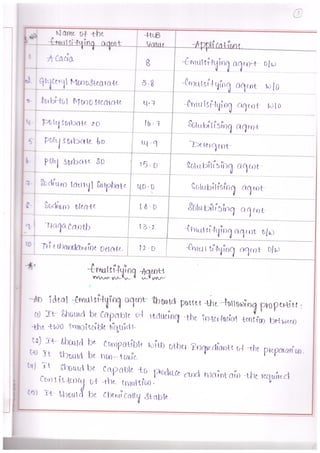 Name of the Emulsifying agent HLB Value Application
1 Acacia 8 Emulsifying agent o/w
2. Glyceryl Monostearate 3.8 Emulsifying agent w/o
3 Sorbitol Monostearate 4.7 Emulsifying agent w/o
4. Polysorbate 20 16.7 Solubilising agent
5 Polysorbate 60 14.9 Detergent
6 Poly sorbate 80 15.0 Solubilising agent
7. Sodium lauryl Sulphate 40.0 Solubilising agent
8. Sodium oleate 18.0 Solubilising agent
9 Tragacanth 13.2 Emulsifying agent o/w
10 Triethanolamine Oleate 12.0 Emulsifying agent o/w
Emulsifying Agents
An ideal emulsifying agent should posses the following properties:
(i) It should be capable of reducing the interfacial tension between
the two immiscible liquids.
It should be compatible with other Ingredients of the preparation.
It should be non-toxic.
It should be capable to produce and maintain the required
Consistency of the emulsion.
It should be chemically stable.